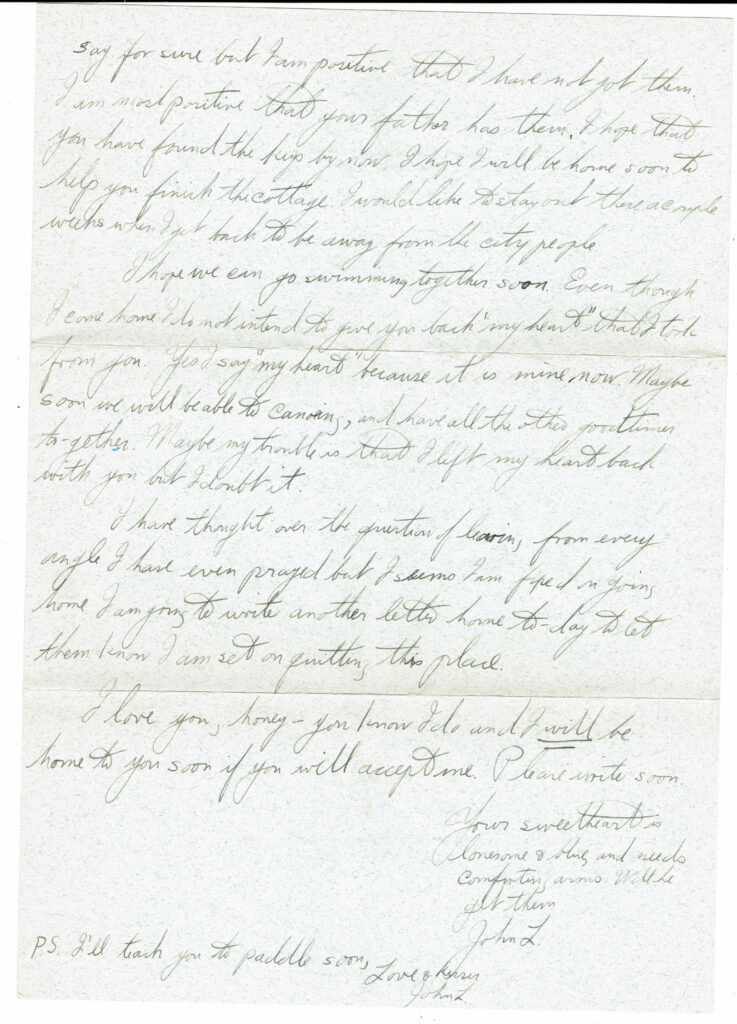 say for sure but I am positive that I have not got them.
I am most positive that your father has them. I hope that
you have found the keys by now. I hope I will be home soon to
help you finish the cottage. I would like to stay out there a couple
weeks when I get back to be away from the city people
I hope we can go swimming together soon. Even though
I come home I do not intend to give you back "my heart" that I took
from you. Yes I say "my heart" because it is mine now. Maybe
soon we will be able to canoeing, and have all the other good times
to-gether. Maybe my trouble is that I left my heart back
with you but I doubt it.
I have thought over the question of leaving from every
angle I have even prayed but I seems I am fixed on going
home I am going to write another letter home to-day to let
them know I am set on quitting this place.
I love you, honey - you know I do and I will be
home to you soon if you will accept me. Please write soon.
Your sweetheart is
lonesome & blue, and needs
comforting arms. Will he
get them
John L.
P.S. I'll teach you to paddle soon,
Love & kisses
John L.